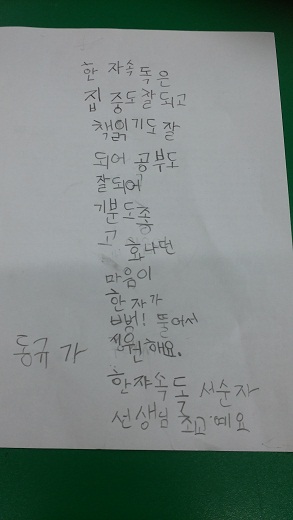 한 자속독은
집중도잘되고
책읽기도잘
되어 공부도
잘되어
기분도좋
고 화나던
마음이
한자가
뻐벙! 뚤어서
시원해요.
동규가
한쟈속독 서순자
선생님 죄고예요